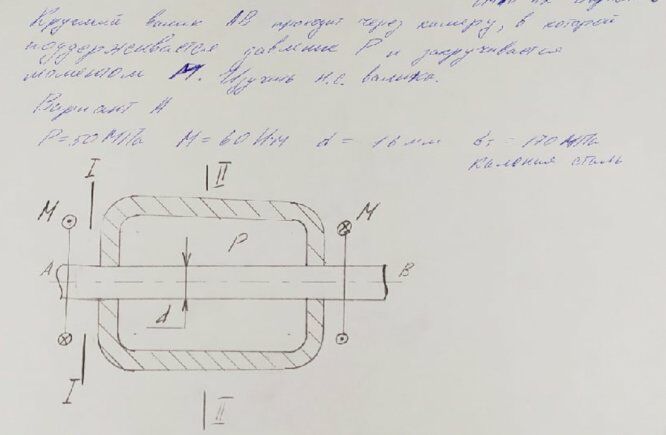 Круглый валик АВ проходит через камеру, в которой
поддерживается давление P и закручивается
моментом M. Изучить н.с. валика.
Вариант А
P = 50 МПа M = 60 Нм d = 16 мм = 170 МПа
сталь
I II
M M
P
A B
d
I II